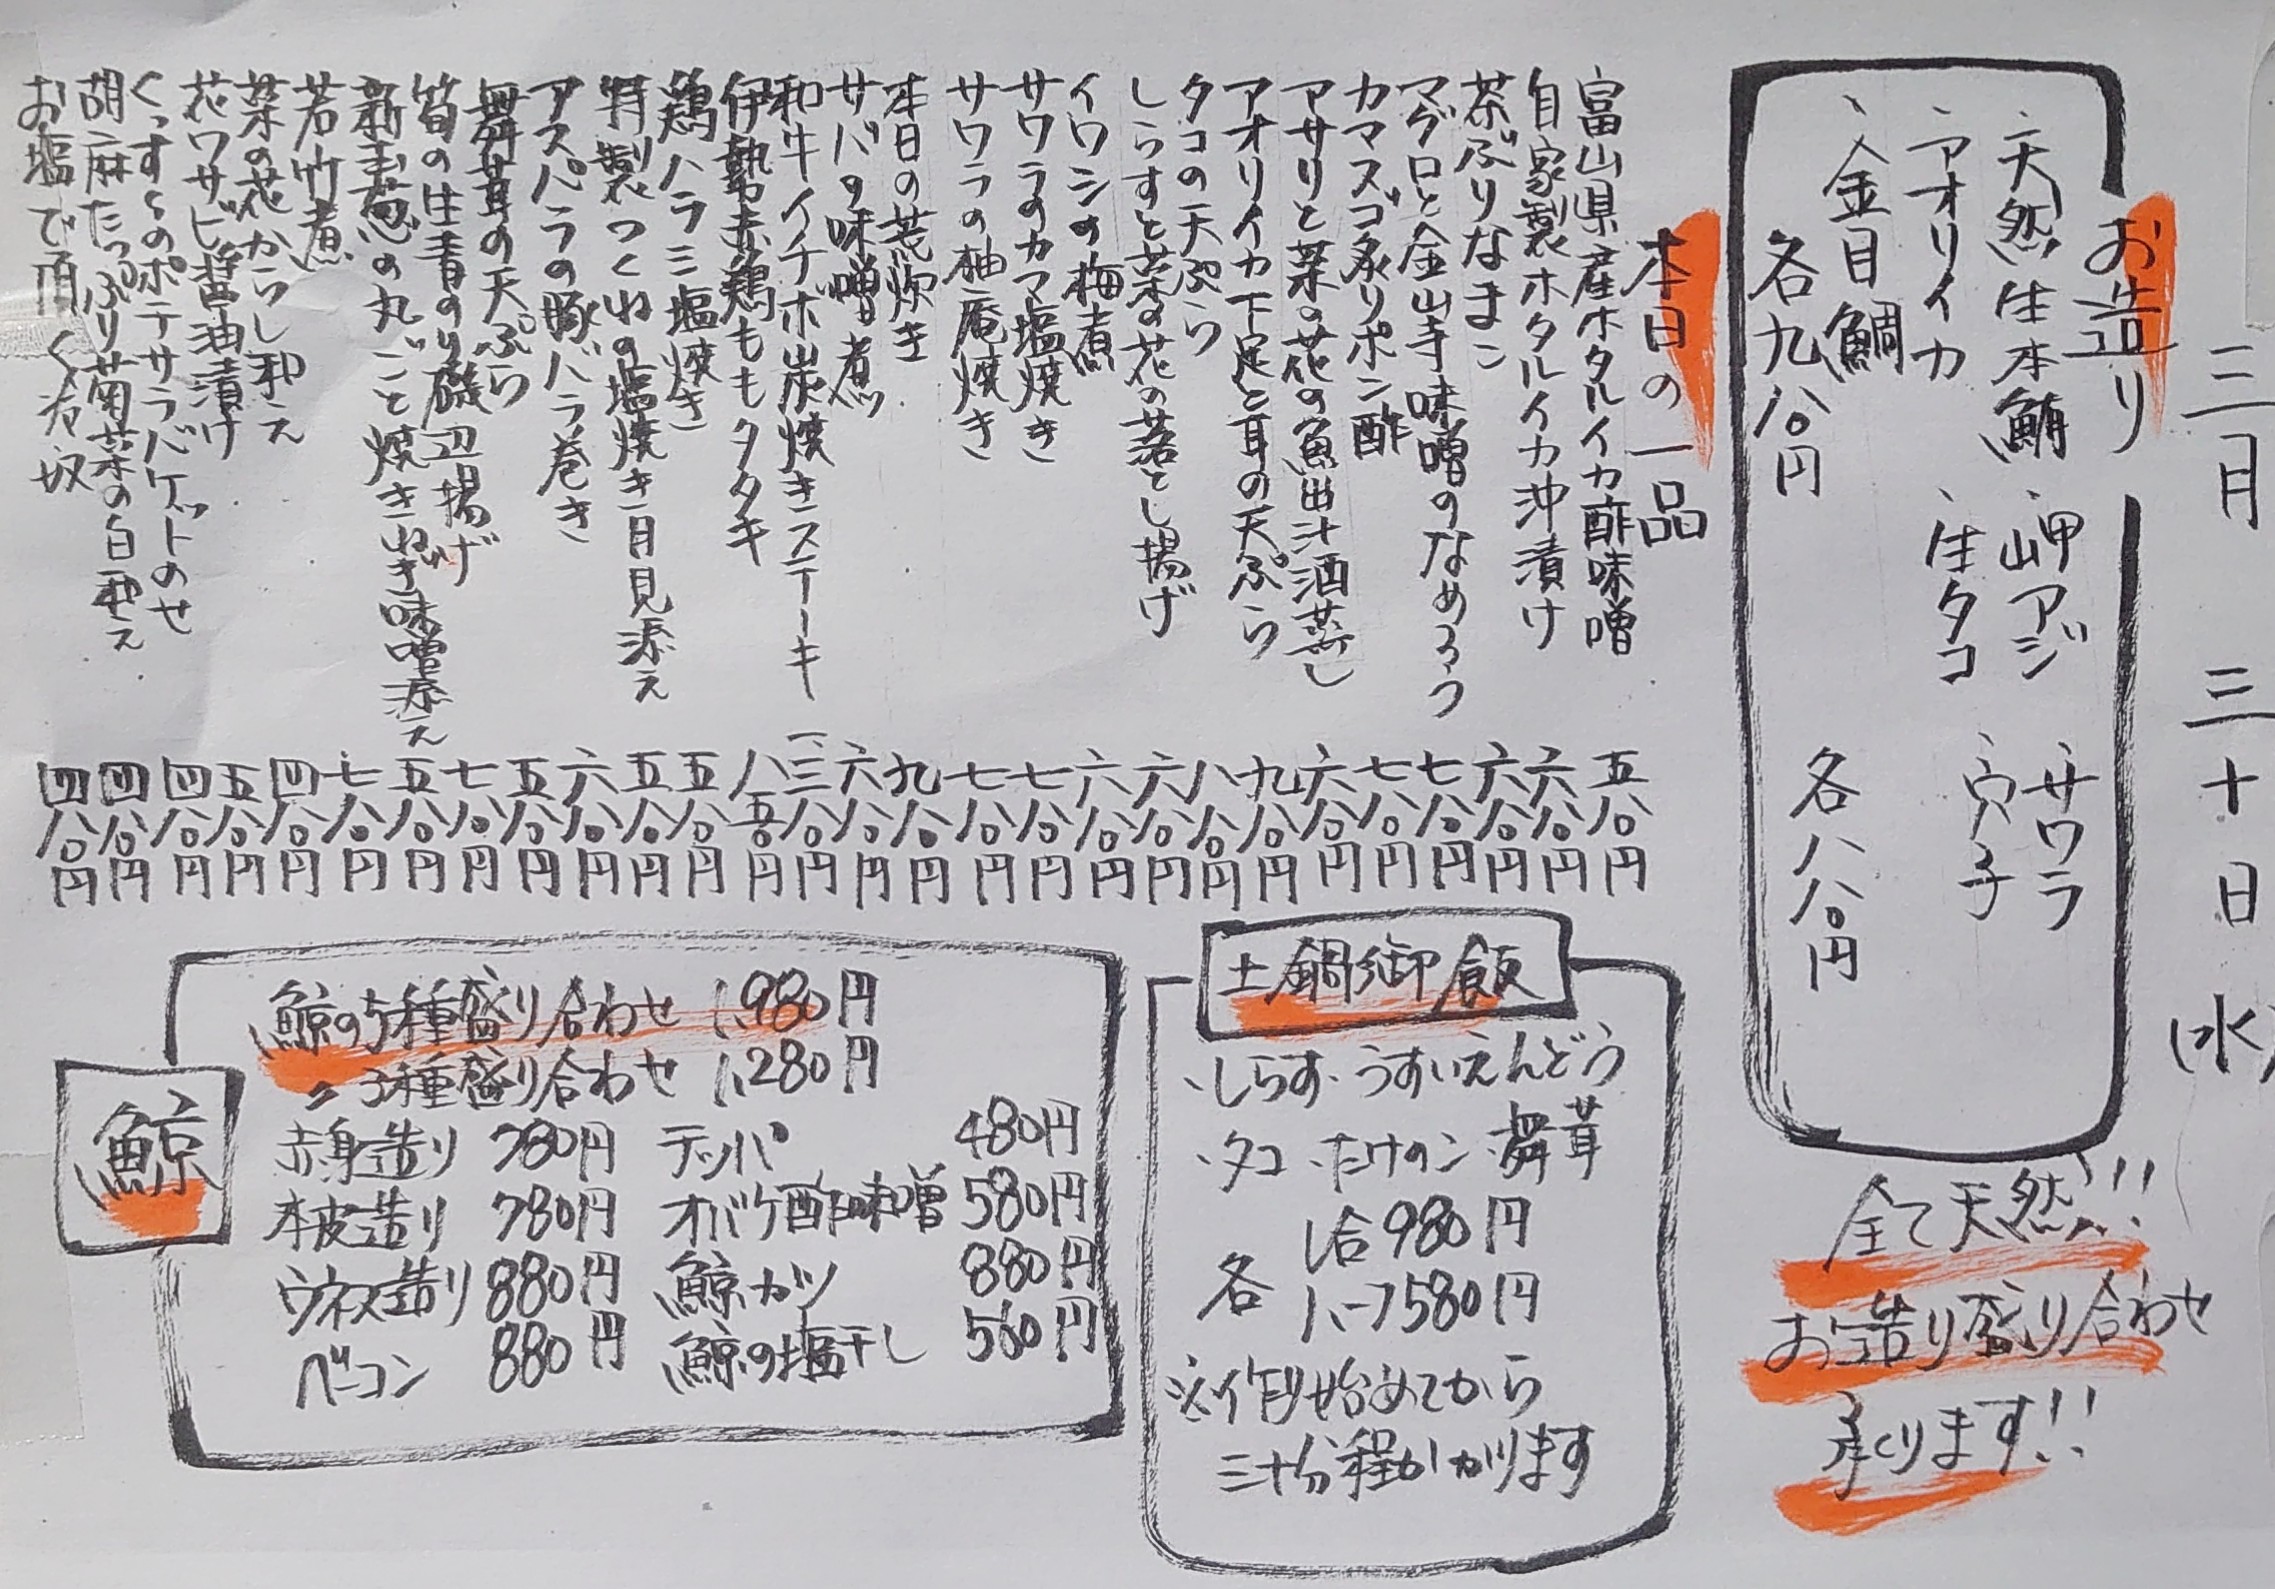 三月三十日(水)
お造り
、天然生本鮪 、岬アジ 、サワラ
、アオリイカ 、生タコ 、穴子
、金目鯛
各九八〇円 各八八〇円
全て天然!!
お造り盛り合わせ
承ります!!
本日の一品
富山県産ホタルイカ酢味噌 五八〇円
自家製ホタルイカ沖漬け 六八〇円
茶ぶりなまこ 六八〇円
マグロと金山寺味噌のなめろう 七八〇円
カマスゴ炙りポン酢 七八〇円
アサリと菜の花の魚出汁酒蒸し 六八〇円
アオリイカ下足と耳の天ぷら 九八〇円
タコの天ぷら 八八〇円
しらすと菜の花の落とし揚げ 六八〇円
イワシの梅煮 六八〇円
サワラのカマ塩焼き 七八〇円
サワラの柚庵焼き 七八〇円
本日の荒炊き 九八〇円
サバの味噌煮 六八〇円
和牛イチボ炭焼きステーキ 一、三八〇円
伊勢赤鶏ももタタキ 八五〇円
鶏ハラミ塩焼き 五八〇円
特製つくねの塩焼き月見添え 五八〇円
アスパラの豚バラ巻き 六八〇円
舞茸の天ぷら 五八〇円
筍の生青のり磯辺揚げ 七八〇円
新玉葱の丸ごと焼きねぎ味噌添え 五八〇円
若竹煮 七八〇円
菜の花からし和え 四八〇円
花ワサビ醤油漬け 五八〇円
くっすくのポテサラバケットのせ 四八〇円
胡麻たっぷり菊菜の白和え 四八〇円
お塩で頂く冷奴 四八〇円
土鍋御飯
、しらす、うすいえんどう
、タコ、たけのこ、舞茸
各 1合980円
ハーフ580円
※作り始めてから
三十分程かかります
鯨
鯨の5種盛り合わせ 1,980円
〃 3種盛り合わせ 1,280円
赤身造り 780円 テッパ 480円
本皮造り 780円 オバケ酢味噌 580円
ウネス造り 880円 鯨カツ 880円
ベーコン 880円 鯨の塩干し 560円